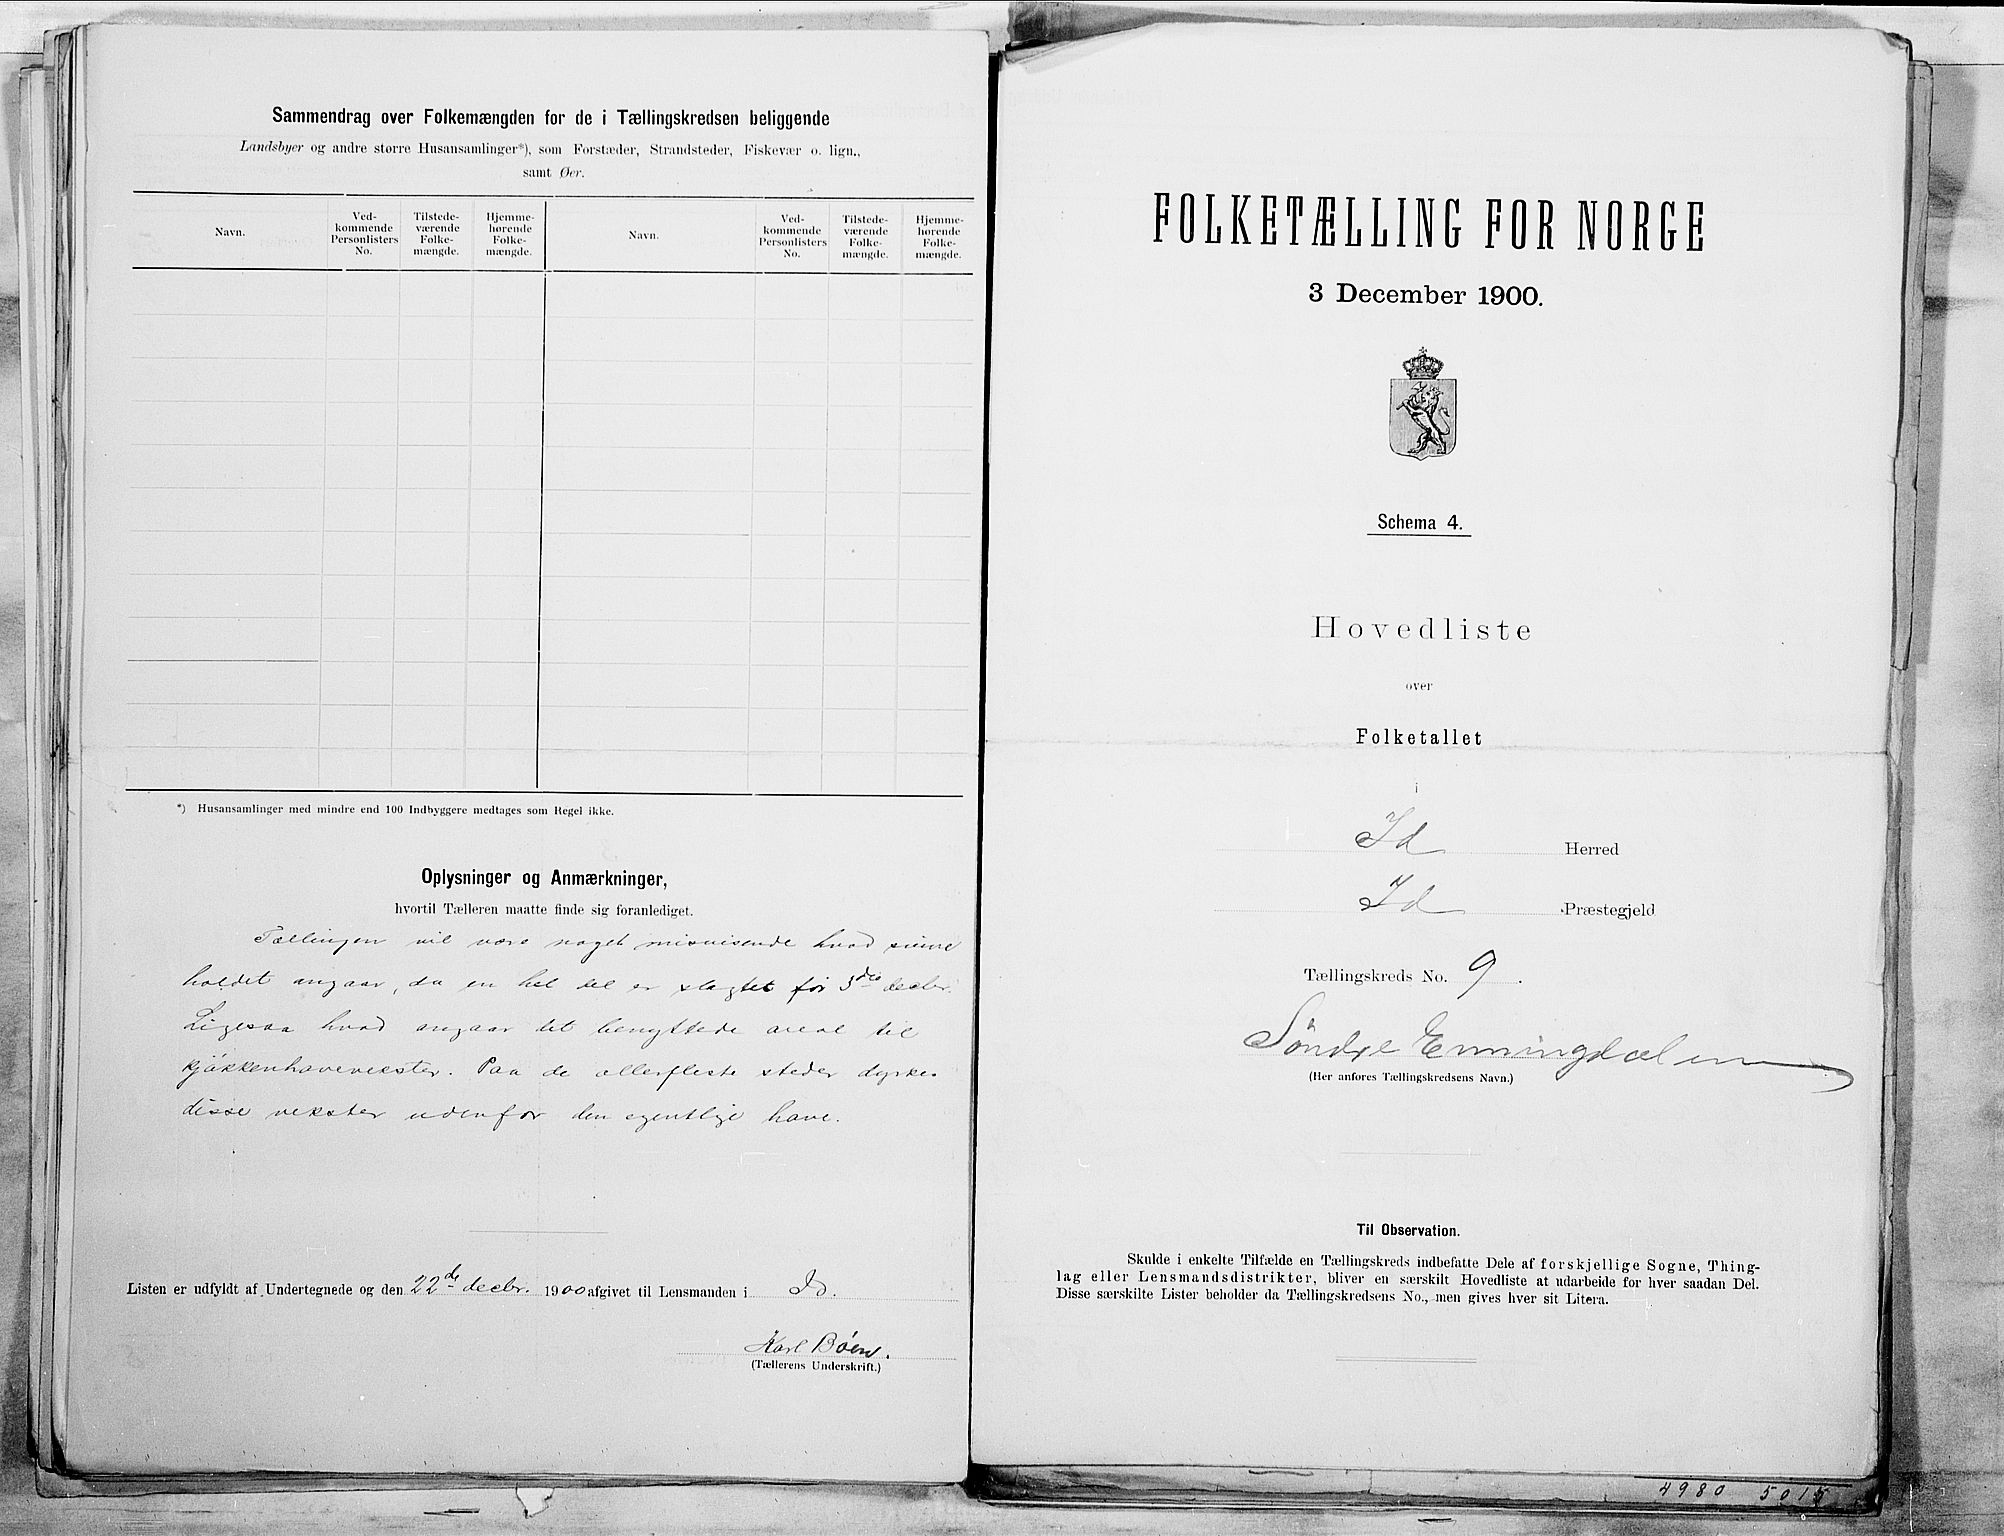 Sammendrag over Folkemængden for de i Tællingskredsen beliggende
Landsbyer og andre større Husansamlinger*), som Forstæder, Strandsteder, Fiskevær o. lign.,
samt Øer.
Navn.
Ved-
kommende
Personlisters
No.
Tilstede-
værende
Folke-
mængde.
Hjemme-
hørende
Folke-
mængde.
Navn.
Ved-
kommende
Personlisters
No.
Tilstede-
værende
Folke-
mængde.
Hjemme-
hørende
Folke-
mængde.
*) Husansamlinger med mindre end 100 Indbyggere medtages som Regel ikke.
Oplysninger og Anmærkninger,
hvortil Tælleren maatte finde sig foranlediget.
Tællingen vil være noget misvisende hvad svine
holdet angaar, da en hel del er slagtet før 3die decbr.
Ligesaa hvad angaar det benyttede areal til
kjøkkenhavevekster. Paa de allerfleste steder dyrkes
disse vekster udenfor den egentlige have.
Listen er udfyldt af Undertegnede og den 22de decbr. 1900 afgivet til Lensmanden i Id.
Karl Bøen.
(Tællerens Underskrift.)
FOLKETÆLLING FOR NORGE
3 December 1900.
Schema 4.
Hovedliste
over
Folketallet
i
Id Herred
Id Præstegjeld
Tællingskreds No. 9.
Søndre Enningdalen
(Her anføres Tællingskredsens Navn.)
Til Observation.
Skulde i enkelte Tilfælde en Tællingskreds indbefatte Dele af forskjellige Sogne, Thing-
lag eller Lensmandsdistrikter, bliver en særskilt Hovedliste at udarbeide for hver saadan Del.
Disse særskilte Lister beholder da Tællingskredsens No., men gives hver sit Litera.
4980 5015